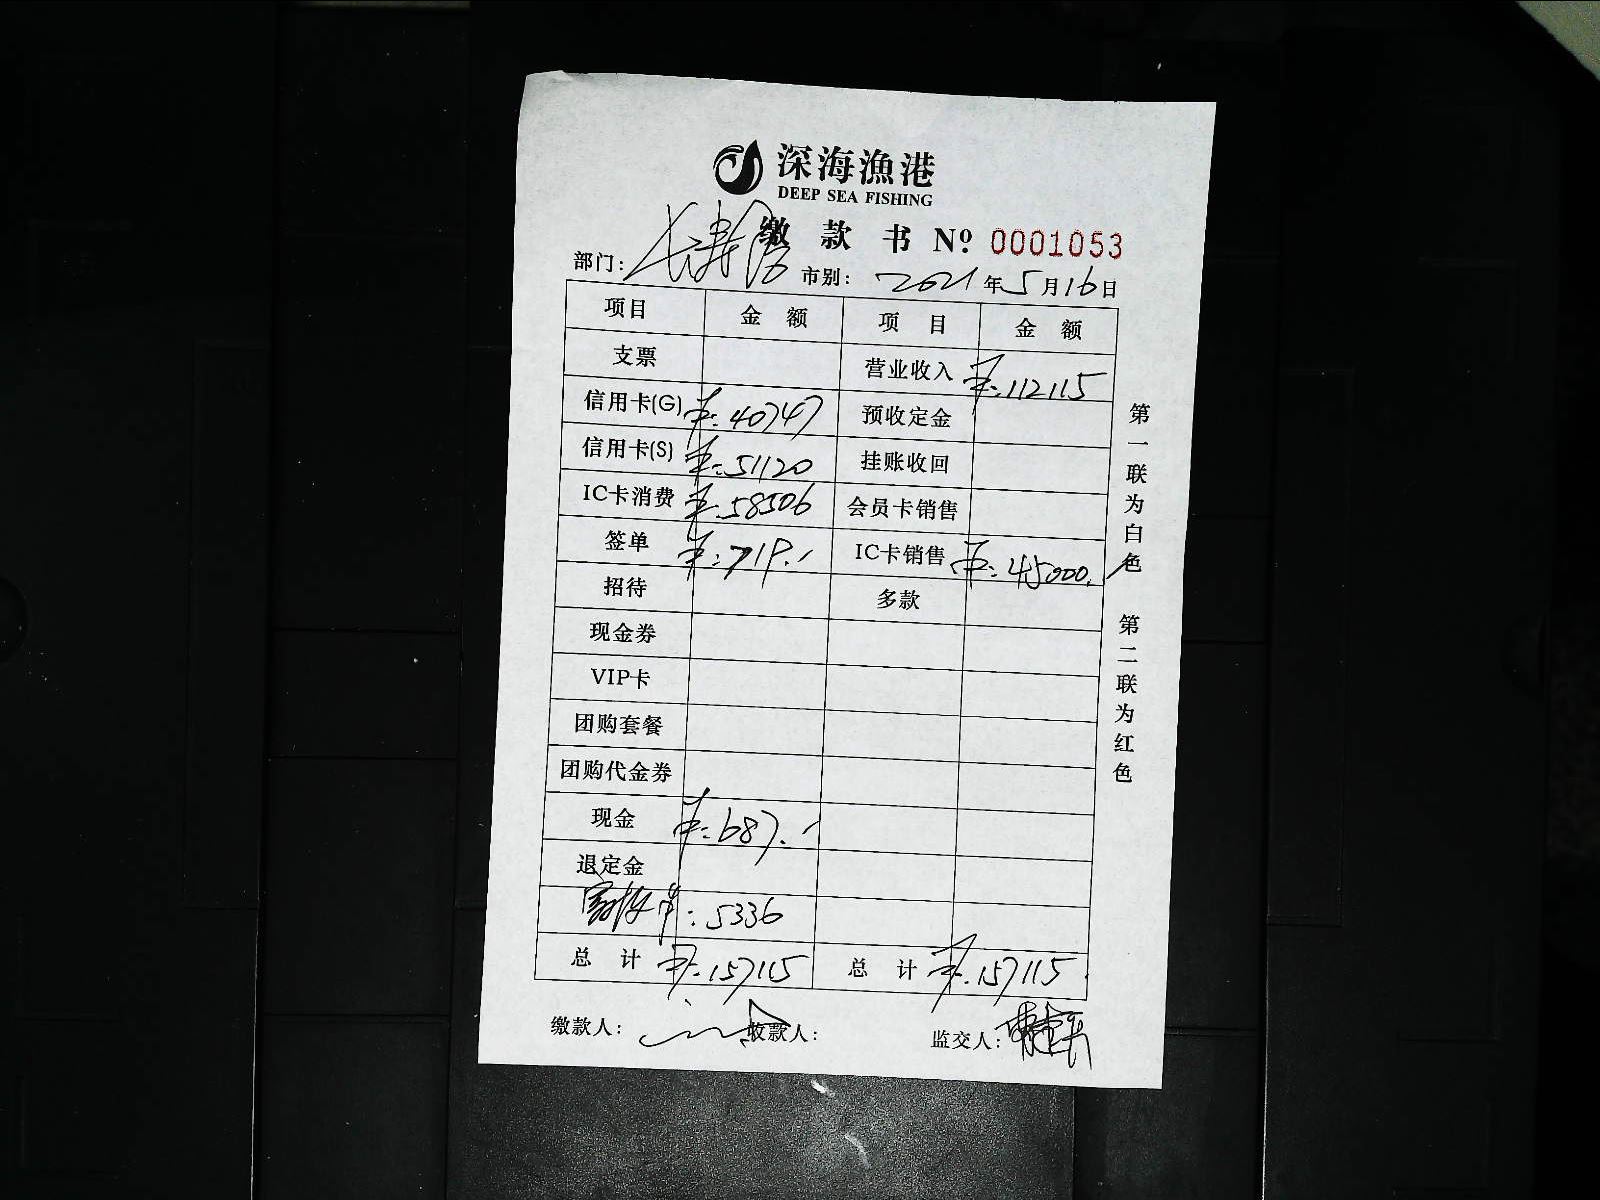 深海漁港
DEEP SEA FISHING
缴款书 № 0001053
部门: 市别: 2021年5月16日
项目 金额 项目 金额
支票 营业收入 ¥:112115
信用卡(G) ¥:40747 预收定金
信用卡(S) ¥:51120 挂账收回
IC卡消费 ¥:58506 会员卡销售
签单 ¥:719.- IC卡销售 ¥:45000.-
招待 多款
现金券
VIP卡
团购套餐
团购代金券
现金 ¥:687.-
退定金
¥:5336
总计 ¥:157115 总计 ¥:157115
缴款人: 收款人: 监交人:
第一联为白色 第二联为红色